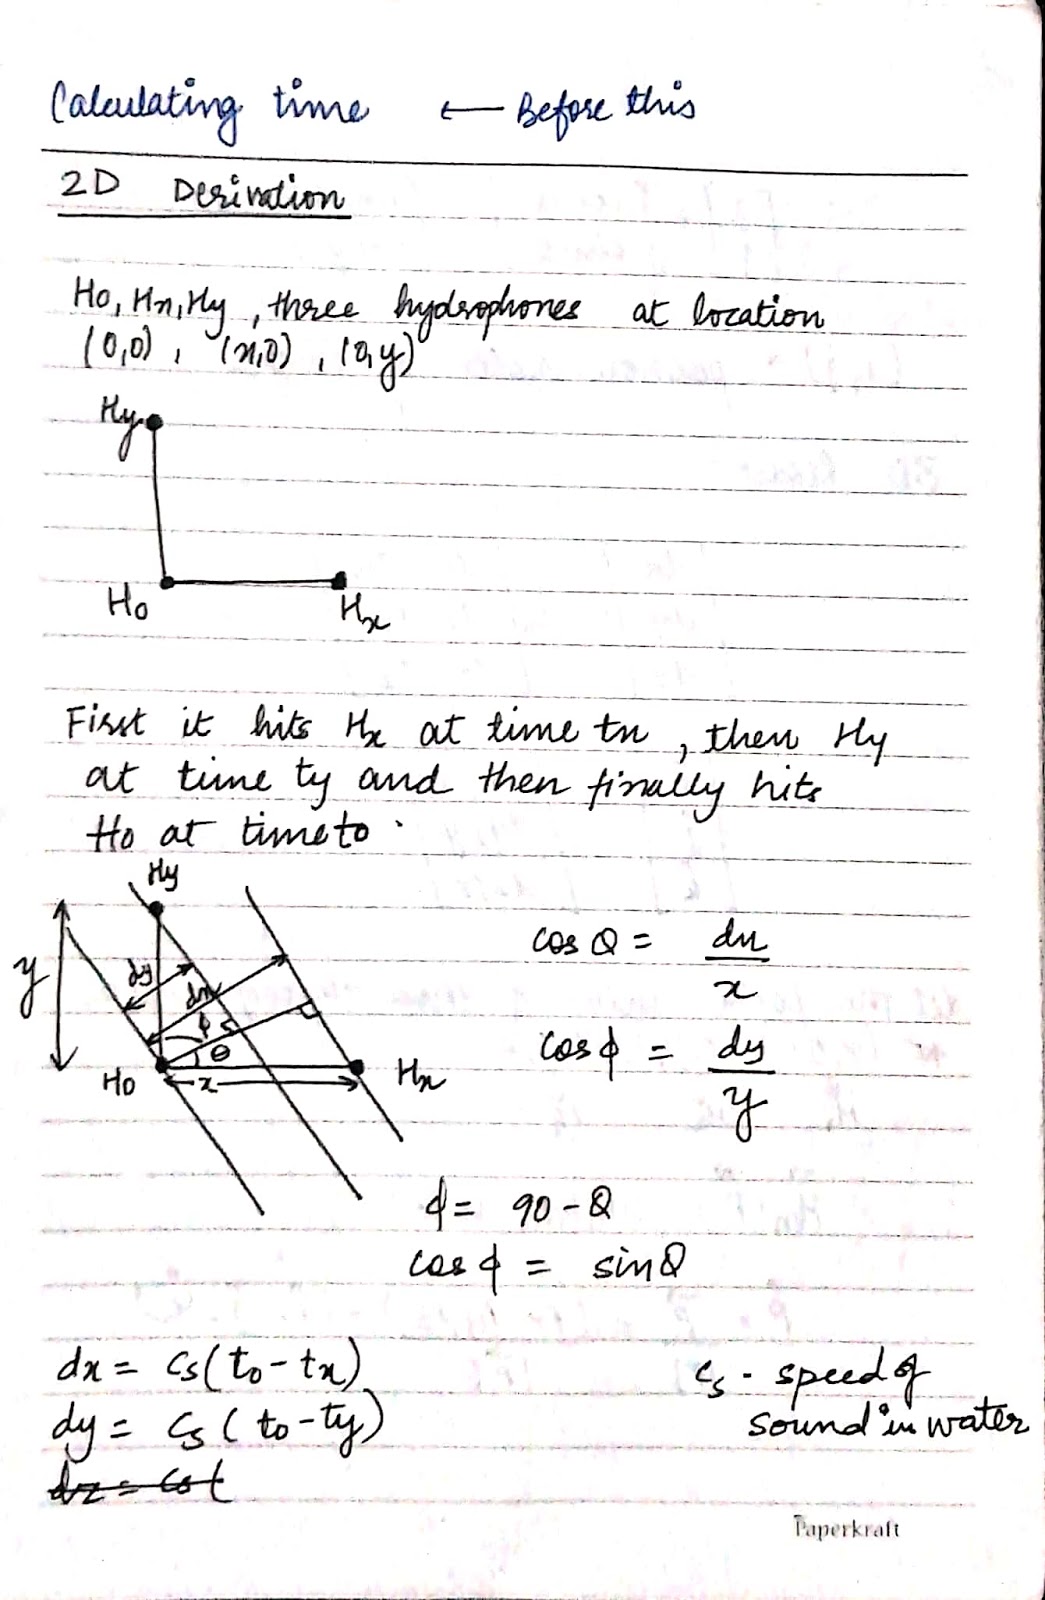 Calculating time ← Before this
2D Derivation
Ho, Hx, Hy, three hydrophones at location
(0,0), (x,0), (0,y)
Hy
Ho
Hx
First it hits Hx at time tx, then Hy
at time ty and then finally hits
Ho at time to.
Hy
y
dy
dx
ϕ
θ
Ho
x
Hx
cos θ = dx / x
cos ϕ = dy / y
ϕ = 90 - θ
cos ϕ = sin θ
dx = cs (to - tx)
dy = cs (to - ty)
dz = cs t
cs - speed of
sound in water
Paperkraft